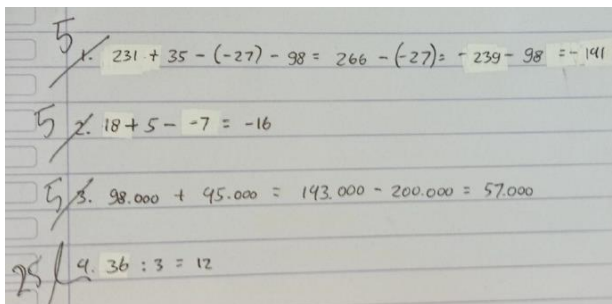 5 1. 231 + 35 - (-27) - 98 = 266 - (-27) = - 239 - 98 = - 141
5 2. 18 + 5 - -7 = -16
5 3. 98.000 + 45.000 = 143.000 - 200.000 = 57.000
25 4. 36 : 3 = 12